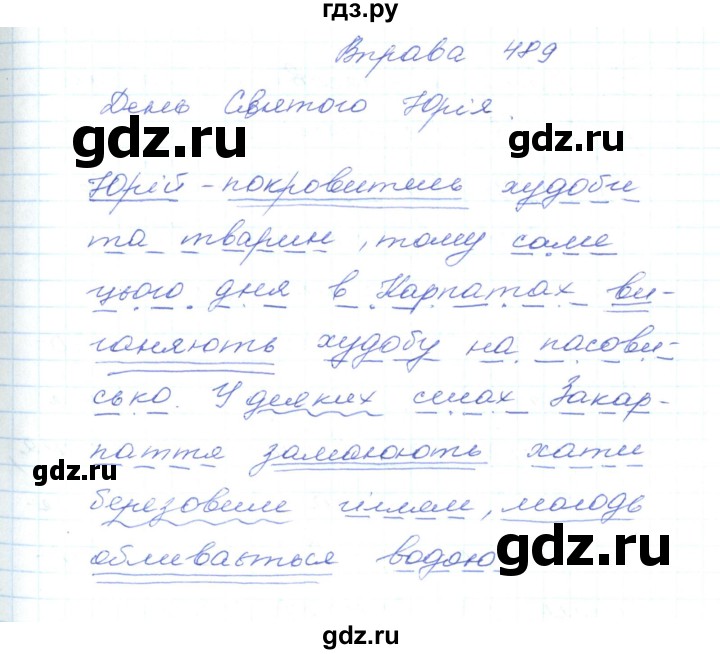 гдз.ру
Вправа 489
День Святого Юрія.
gdz.ru
gdz.ru
Юрій - покровитель худоби
та тварин, тому саме
цього дня в Карпатах ви-
ганяють худобу на пасови-
сько. У деяких селах Закар-
паття замаюють хати
березовим гіллям, молодь
обливається водою
gdz.ru
gdz.ru
gdz.ru
gdz.ru